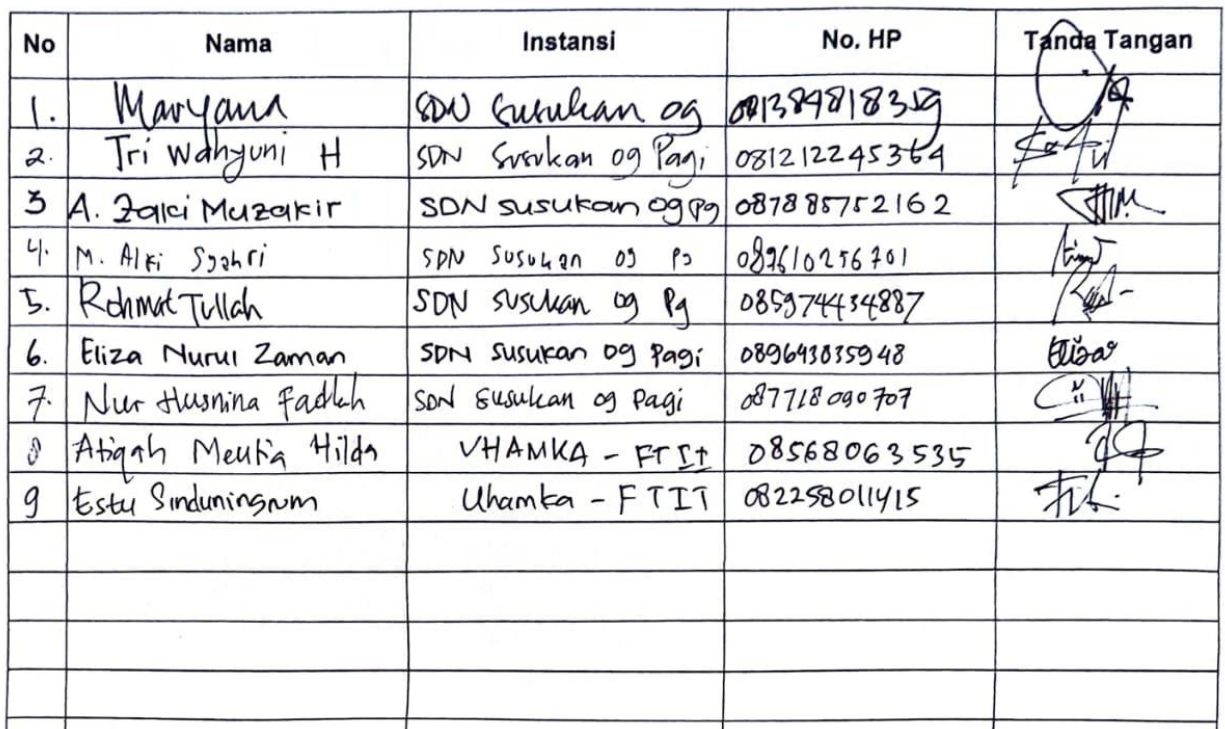 No Nama Instansi No. HP Tanda Tangan
1. Maryana SDN Susukan 09 081384818359
2. Tri Wahyuni H SDN Susukan 09 Pagi 081212245364
3 A. Zaki Muzakir SDN Susukan 09 Pg 087885752162
4. M. Alki Syahri SDN Susukan 09 Pg
5. Rohmat Tullah SDN Susukan 09 Pg 085974434887
6. Eliza Nurul Zaman SDN Susukan 09 Pagi 089643835948 Elizar
7. Nur Husnina Fadlah SDN Susukan 09 Pagi 087718090707
8 Atiqah Meutia Hilda UHAMKA - FTIT 08568063535
9 Estu Sinduningrum Uhamka - FTIT 082258011415